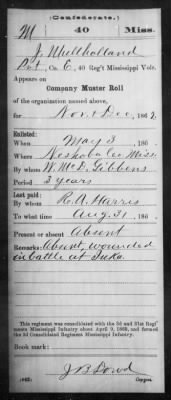 (Confederate.)
M 40 Miss.
J. Mullholland
Pvt, Co. E, 40 Reg't Mississippi Vols.
Appears on
Company Muster Roll
of the organization named above,
for Nov & Dec, 1862.
Enlisted:
When May 3, 186 .
Where Neshoba Co Miss.
By whom W. McD. Gibbens
Period 3 years
Last paid:
By whom R. A. Harris
To what time Aug. 31, 186 .
Present or absent Absent
Remarks: Absent, wounded
in battle at Iuka.
This regiment was consolidated with the 3d and 31st Regi-
ments Mississippi Infantry about April 9, 1865, and formed
the 3d Consolidated Regiment Mississippi Infantry.
Book mark:
J B Dowd
(642) Copyist.